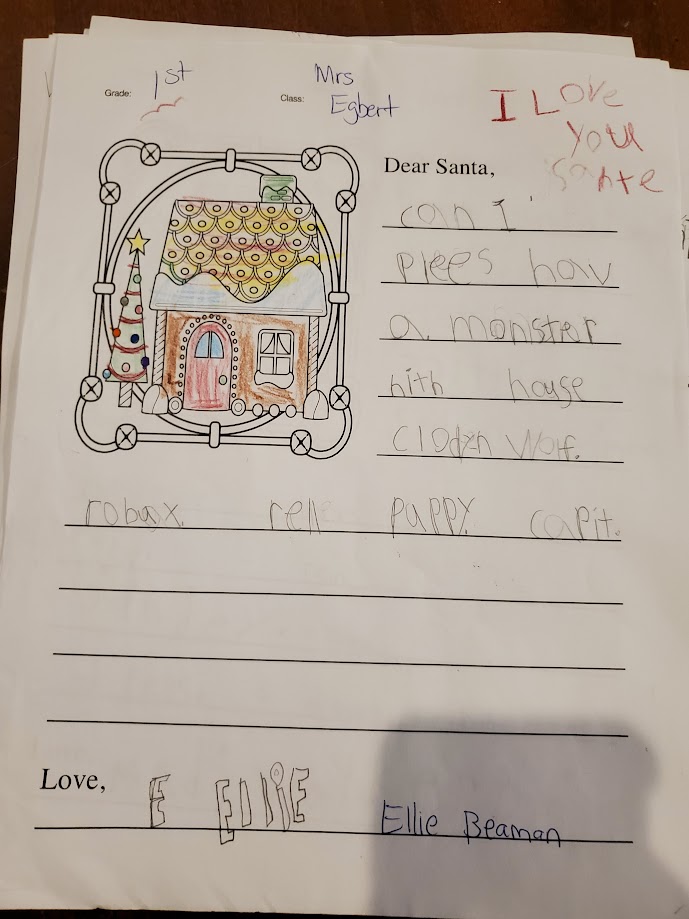 Grade: 1st
Class: Mrs Egbert
I Love
you
sante
Dear Santa,
can I
plees hav
a monster
hith house
Clodzn Wolf.
robux rell puppy capit.
Love, E EllIE Ellie Beaman